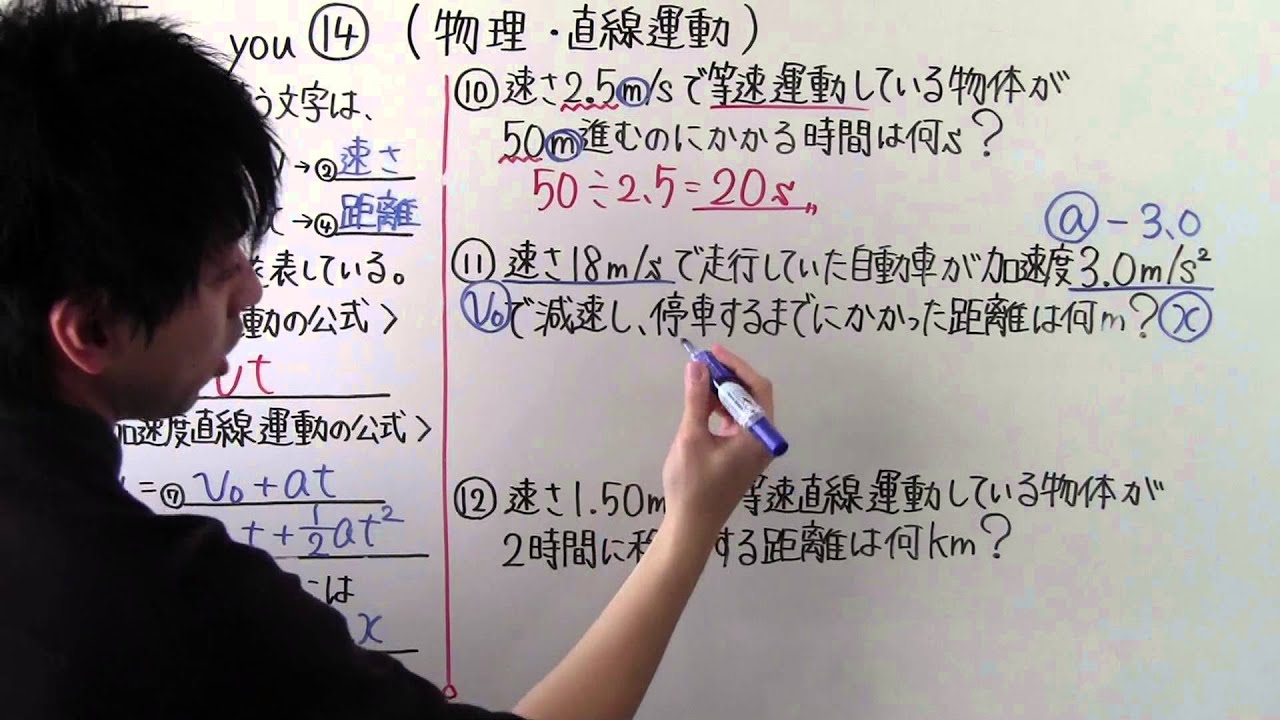 you ⑭ (物理・直線運動)
う文字は、
→②速さ
→④距離
表している。
動の公式>
vt
加速度直線運動の公式>
=⑦ v₀+at
t+1/2at²
には
x
⑩ 速さ2.5m/sで等速運動している物体が
50m進むのにかかる時間は何s?
50÷2.5=20s
ⓐ -3.0
⑪ 速さ18m/sで走行していた自動車が加速度3.0m/s²
v₀ で減速し、停車するまでにかかった距離は何m? ⓧ
⑫ 速さ1.50m 等速直線運動している物体が
2時間に移 する距離は何km?